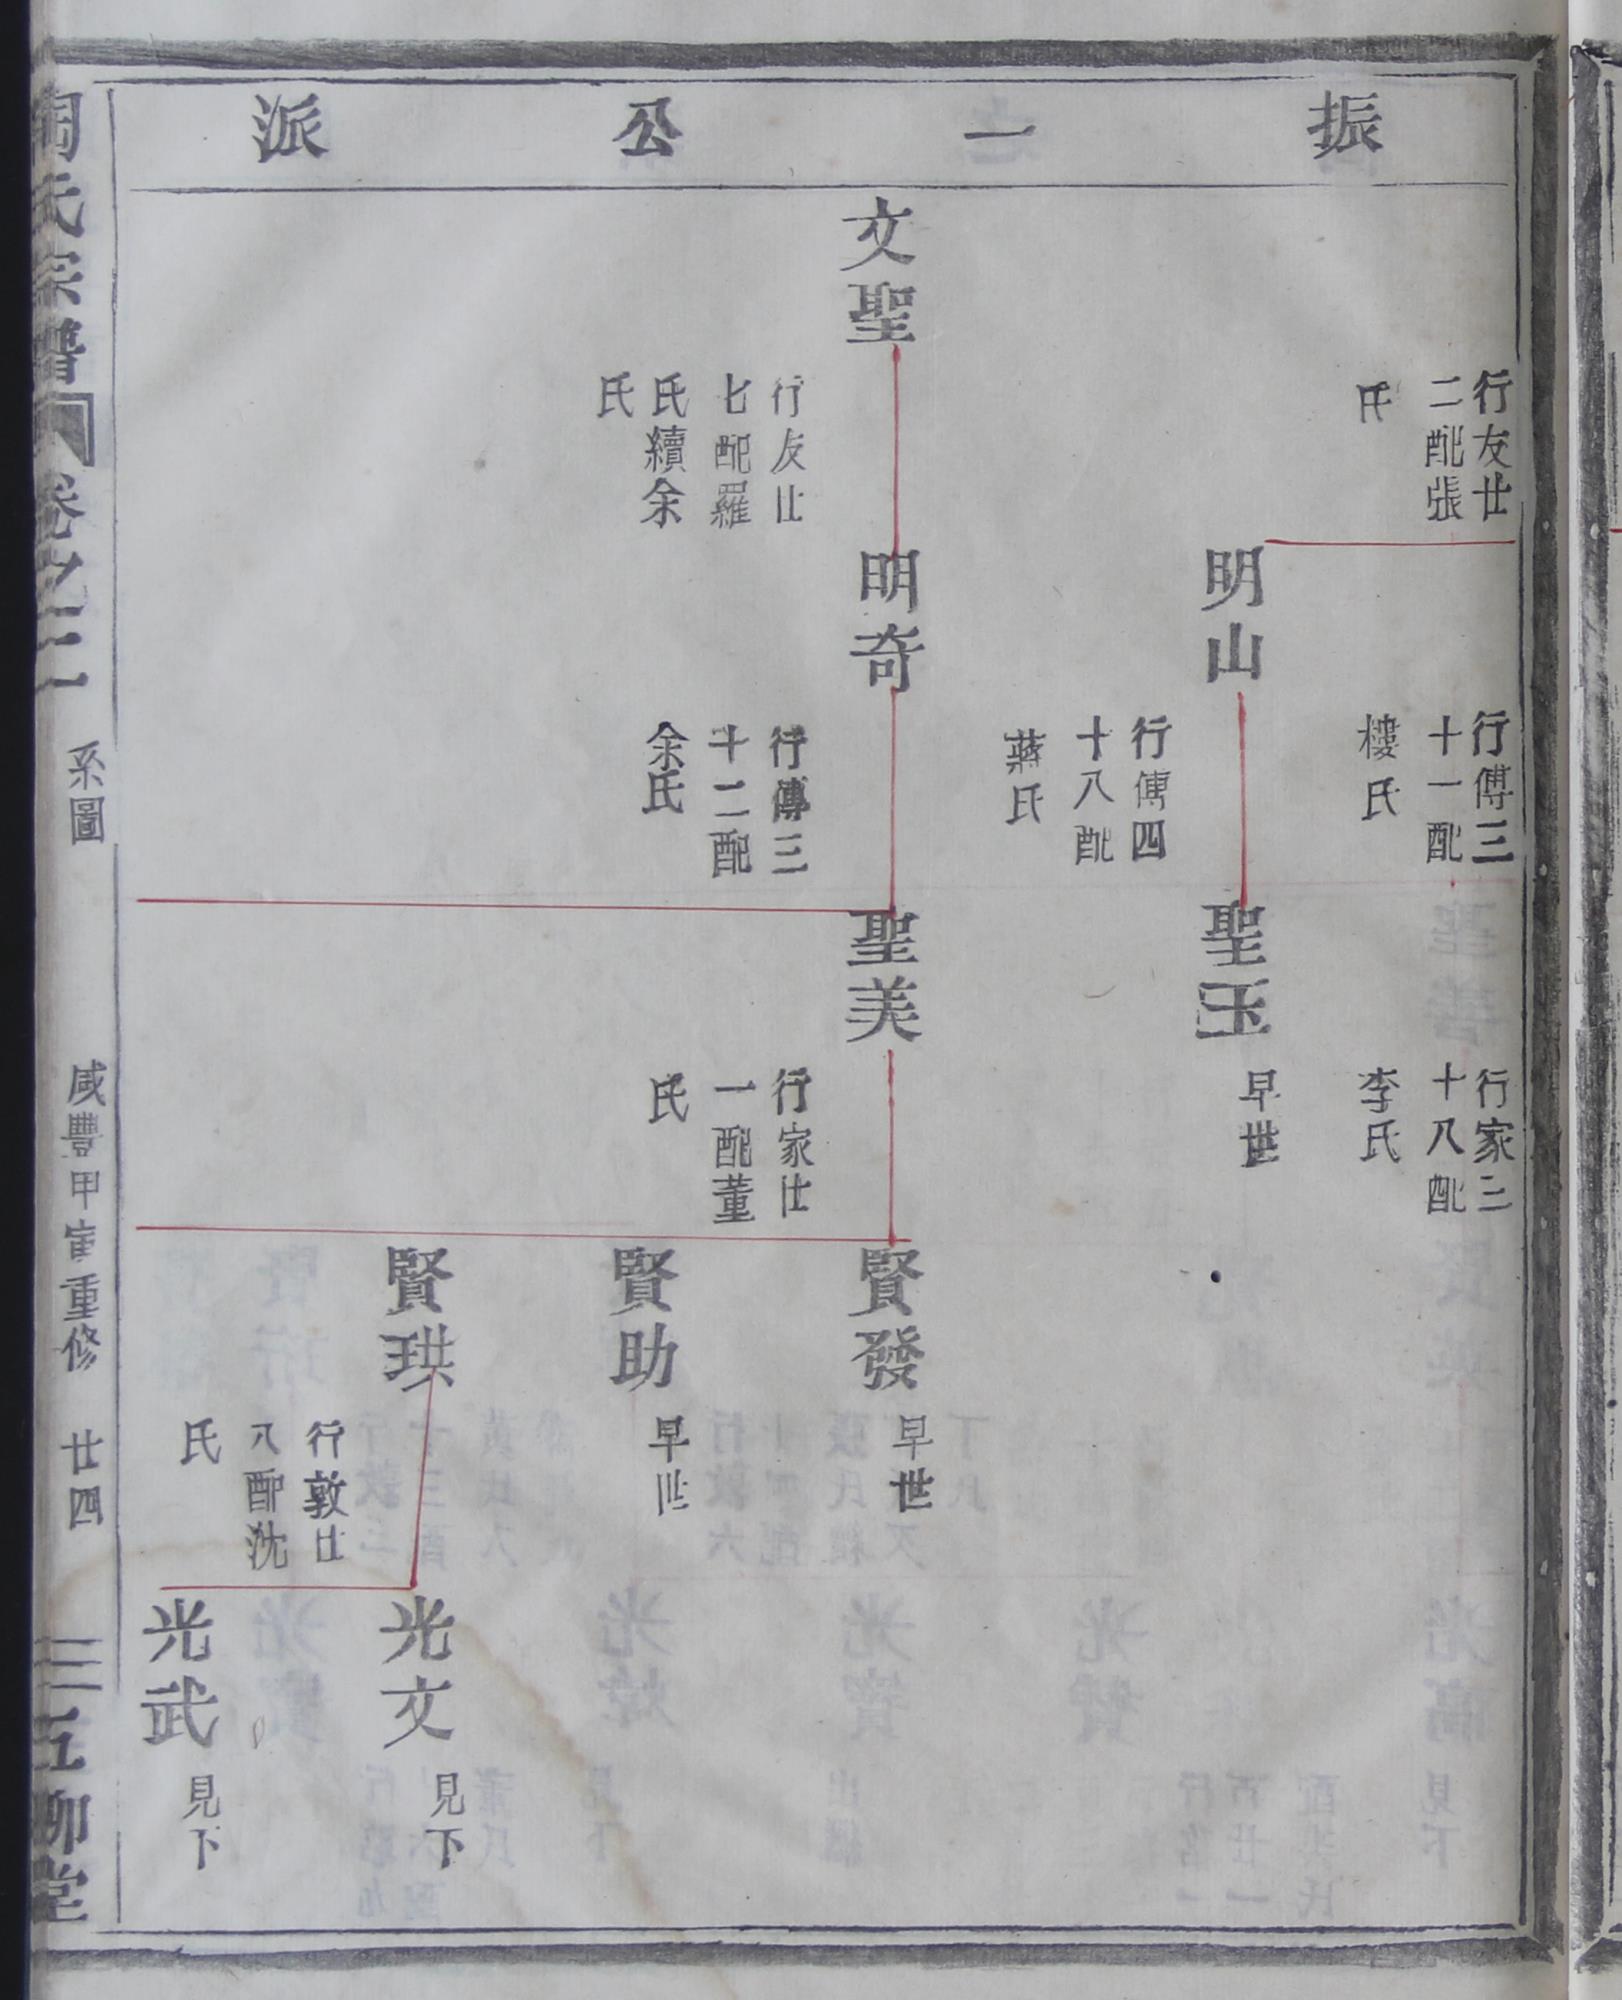 振一公派
行友廿
二配張
氏
文聖
行友廿
七配羅
氏續余
氏
行傳三
十一配
樓氏
明山
行傳四
十八配
蔣氏
明奇
行傳三
十二配
余氏
行家三
十八配
李氏
聖玉
早世
聖美
行家廿
一配董
氏
賢發
早世
賢助
早世
賢珙
行敦廿
八配沈
氏
光文
見下
光武
見下
陶氏宗譜
卷之二
系圖
咸豐甲寅重修
廿四
五柳堂